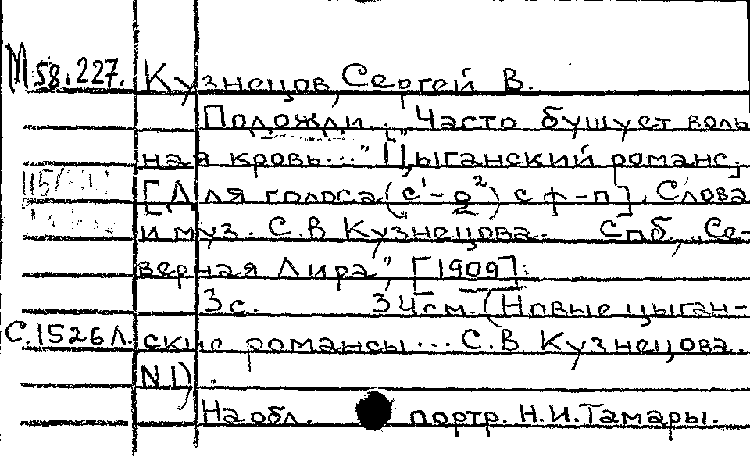 М 58.227. Кузнецов, Сергей В.
Подожди. "Часто бушует воль
ная кровь..." Цыганский романс.
[Для голоса (c¹-g²) с ф-п]. Слова
и муз. С.В Кузнецова. Спб, „Се-
верная Лира", [1909].
3с. 34см. (Новые цыган-
С.1526Л. ские романсы... С.В Кузнецова.
N1).
На обл. портр. Н.И.Тамары.